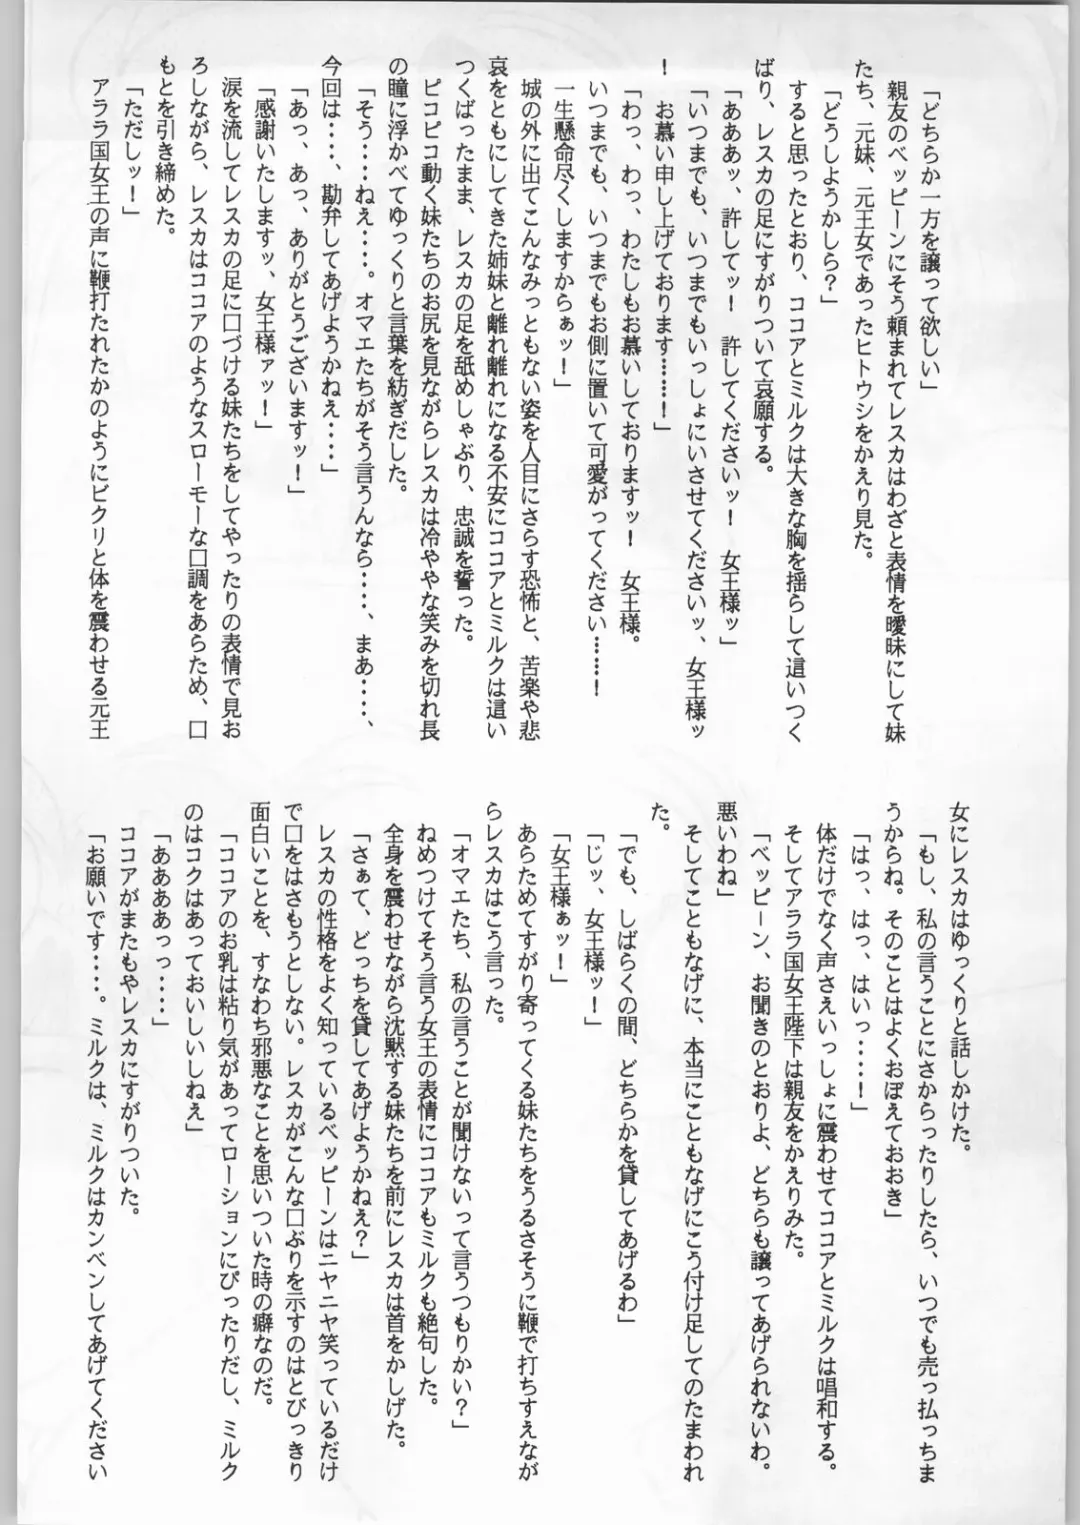 「どちらか一方を譲って欲しい」
親友のベッピーンにそう頼まれてレスカはわざと表情を曖昧にして妹
たち、元妹、元王女であったヒトウシをかえり見た。
「どうしようかしら？」
すると思ったとおり、ココアとミルクは大きな胸を揺らして這いつく
ばり、レスカの足にすがりついて哀願する。
「あああッ、許してッ！　許してくださいッ！　女王様ッ」
「いつまでも、いつまでもいっしょにいさせてくださいッ、女王様ッ
！　お慕い申し上げております……！」
「わっ、わっ、わたしもお慕いしておりますッ！　女王様。
いつまでも、いつまでもお側に置いて可愛がってください……！
一生懸命尽くしますからぁッ！」
城の外に出てこんなみっともない姿を人目にさらす恐怖と、苦楽や悲
哀をともにしてきた姉妹と離れ離れになる不安にココアとミルクは這い
つくばったまま、レスカの足を舐めしゃぶり、忠誠を誓った。
ピコピコ動く妹たちのお尻を見ながらレスカは冷ややな笑みを切れ長
の瞳に浮かべてゆっくりと言葉を紡ぎだした。
「そう・・・ねえ・・・・。オマエたちがそう言うんなら・・・・、まあ・・・・、
今回は・・・・、勘弁してあげようかねえ・・・・」
「あっ、あっ、ありがとうございますッ！」
「感謝いたしますッ、女王様ァッ！」
涙を流してレスカの足に口づける妹たちをしてやったりの表情で見お
ろしながら、レスカはココアのようなスローモーな口調をあらため、口
もとを引き締めた。
「ただしッ！」
アララ国女王の声に鞭打たれたかのようにビクリと体を震わせる元王
女にレスカはゆっくりと話しかけた。
「もし、私の言うことにさからったりしたら、いつでも売っ払っちま
うからね。そのことはよくおぼえておおき」
「はっ、はっ、はいっ・・・・！」
体だけでなく声さえいっしょに震わせてココアとミルクは唱和する。
そしてアララ国女王陛下は親友をかえりみた。
「ベッピーン、お聞きのとおりよ、どちらも譲ってあげられないわ。
悪いわね」
そしてこともなげに、本当にこともなげにこう付け足してのたまわれ
た。
「でも、しばらくの間、どちらかを貸してあげるわ」
「じッ、女王様ッ！」
「女王様ぁッ！」
あらためてすがり寄ってくる妹たちをうるさそうに鞭で打ちすえなが
らレスカはこう言った。
「オマエたち、私の言うことが聞けないって言うつもりかい？」
ねめつけてそう言う女王の表情にココアもミルクも絶句した。
全身を震わせながら沈黙する妹たちを前にレスカは首をかしげた。
「さぁて、どっちを貸してあげようかねえ？」
レスカの性格をよく知っているベッピーンはニヤニヤ笑っているだけ
で口をはさもうとしない。レスカがこんな口ぶりを示すのはとびっきり
面白いことを、すなわち邪悪なことを思いついた時の癖なのだ。
「ココアのお乳は粘り気があってローションにぴったりだし、ミルク
のはコクはあっておいしいしねえ」
「ああああっっ・・・・」
ココアがまたもやレスカにすがりついた。
「お願いです・・・・。ミルクは、ミルクはカンベンしてあげてください